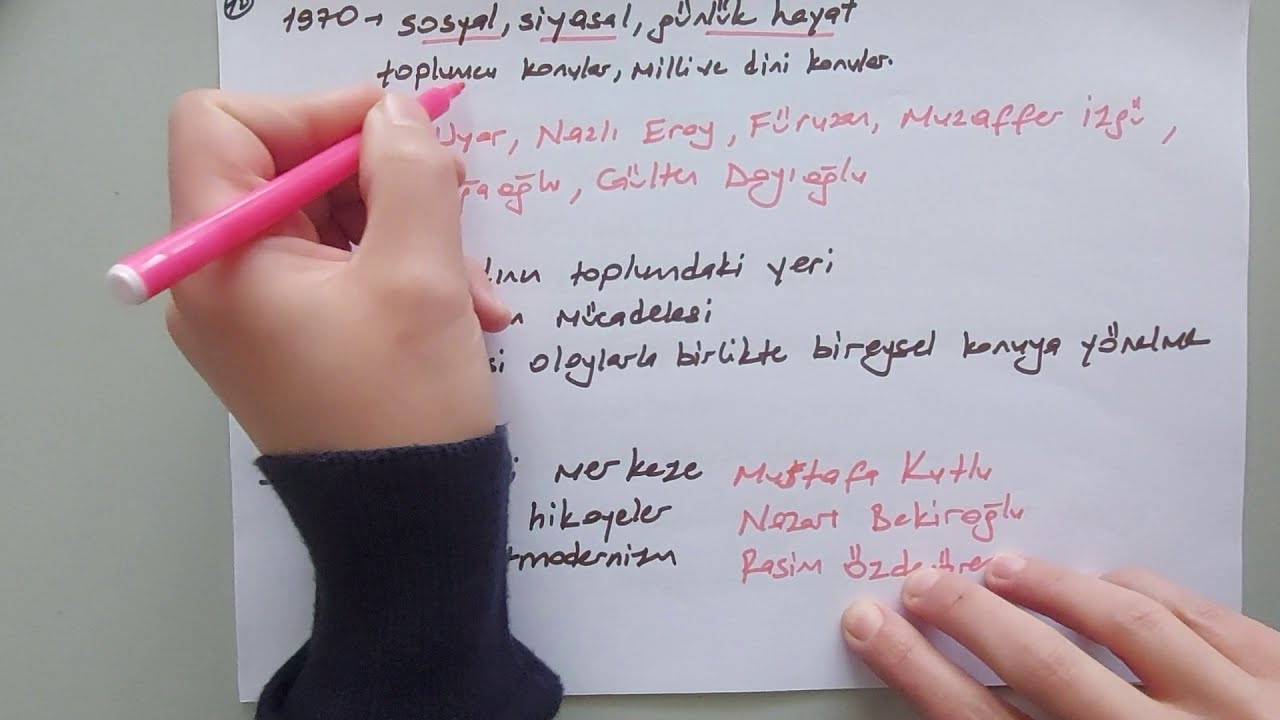 1970 → sosyal, siyasal, günlük hayat
toplumcu konular, milli ve dini konular.
Uyar, Nazlı Eray, Füruzan, Muzaffer İzgü,
Gülten Dayıoğlu
toplumdaki yeri
mücadelesi
olaylarla birlikte bireysel konuya yönelme
merkeze Mustafa Kutlu
hikayeler Nazan Bekiroğlu
modernizm Rasim